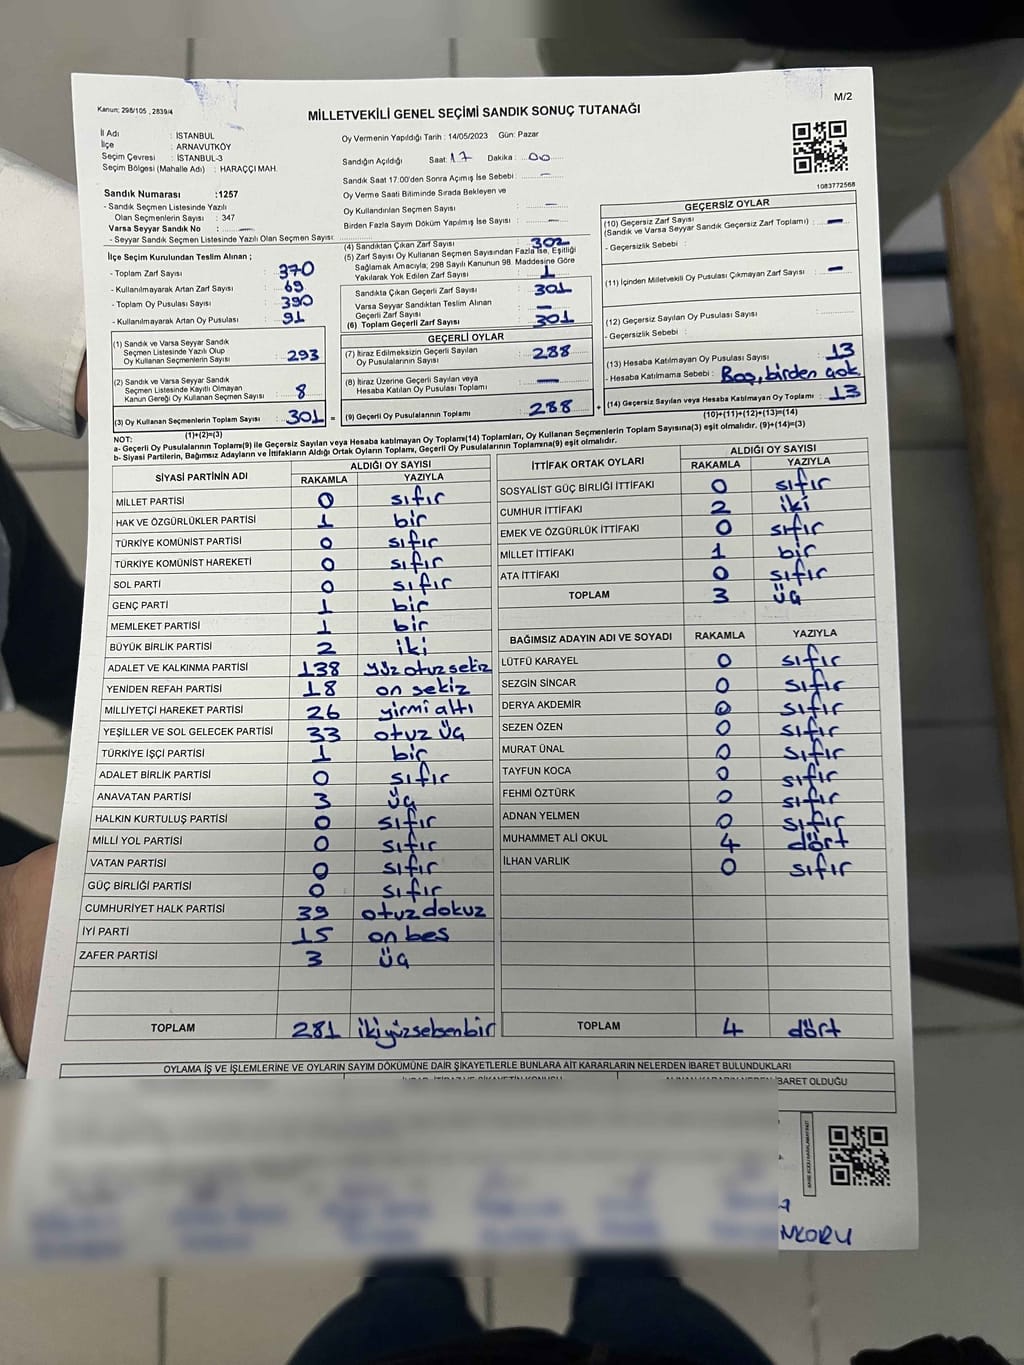 Kanun; 298/105 , 2839/4
M/2
MİLLETVEKİLİ GENEL SEÇİMİ SANDIK SONUÇ TUTANAĞI
İl Adı : İSTANBUL
İlçe : ARNAVUTKÖY
Seçim Çevresi : İSTANBUL-3
Seçim Bölgesi (Mahalle Adı) : HARAÇÇI MAH.
Sandık Numarası :1257
- Sandık Seçmen Listesinde Yazılı
Olan Seçmenlerin Sayısı : 347
Varsa Seyyar Sandık No : —
- Seyyar Sandık Seçmen Listesinde Yazılı Olan Seçmen Sayısı:
İlçe Seçim Kurulundan Teslim Alınan ;
- Toplam Zarf Sayısı : 370
- Kullanılmayarak Artan Zarf Sayısı : 69
- Toplam Oy Pusulası Sayısı : 390
- Kullanılmayarak Artan Oy Pusulası : 91
(1) Sandık ve Varsa Seyyar Sandık
Seçmen Listesinde Yazılı Olup
Oy Kullanan Seçmenlerin Sayısı : 293
(2) Sandık ve Varsa Seyyar Sandık
Seçmen Listesinde Kayıtlı Olmayan
Kanun Gereği Oy Kullanan Seçmen Sayısı : 8
(3) Oy Kullanan Seçmenlerin Toplam Sayısı : 301 =
(1)+(2)=(3)
Oy Vermenin Yapıldığı Tarih : 14/05/2023 Gün: Pazar
Sandığın Açıldığı Saat: 17 Dakika : 00
Sandık Saat 17:00'den Sonra Açılmış İse Sebebi : —
Oy Verme Saati Bitiminde Sırada Bekleyen ve
Oy Kullandırılan Seçmen Sayısı : —
Birden Fazla Sayım Döküm Yapılmış İse Sayısı : —
(4) Sandıktan Çıkan Zarf Sayısı : 302
(5) Zarf Sayısı Oy Kullanan Seçmen Sayısından Fazla İse, Eşitliği
Sağlamak Amacıyla; 298 Sayılı Kanunun 98. Maddesine Göre
Yakılarak Yok Edilen Zarf Sayısı : 1
Sandıkta Çıkan Geçerli Zarf Sayısı : 301
Varsa Seyyar Sandıktan Teslim Alınan
Geçerli Zarf Sayısı : —
(6) Toplam Geçerli Zarf Sayısı : 301
GEÇERLİ OYLAR
(7) İtiraz Edilmeksizin Geçerli Sayılan
Oy Pusulalarının Sayısı : 288
(8) İtiraz Üzerine Geçerli Sayılan veya
Hesaba Katılan Oy Pusulası Toplamı : —
(9) Geçerli Oy Pusulalarının Toplamı : 288 +
1083772568
GEÇERSİZ OYLAR
(10) Geçersiz Zarf Sayısı
(Sandık ve Varsa Seyyar Sandık Geçersiz Zarf Toplamı) : —
- Geçersizlik Sebebi :
(11) İçinden Milletvekili Oy Pusulası Çıkmayan Zarf Sayısı : —
(12) Geçersiz Sayılan Oy Pusulası Sayısı :
- Geçersizlik Sebebi :
(13) Hesaba Katılmayan Oy Pusulası Sayısı : 13
- Hesaba Katılmama Sebebi : Boş, birden çok
(14) Geçersiz Sayılan veya Hesaba Katılmayan Oy Toplamı : 13
(10)+(11)+(12)+(13)=(14)
NOT:
a- Geçerli Oy Pusulalarının Toplamı(9) ile Geçersiz Sayılan veya Hesaba katılmayan Oy Toplamı(14) Toplamları, Oy Kullanan Seçmenlerin Toplam Sayısına(3) eşit olmalıdır. (9)+(14)=(3)
b- Siyasi Partilerin, Bağımsız Adayların ve İttifakların Aldığı Ortak Oyların Toplamı, Geçerli Oy Pusulalarının Toplamına(9) eşit olmalıdır.
SİYASİ PARTİNİN ADI ALDIĞI OY SAYISI
RAKAMLA YAZIYLA
MİLLET PARTİSİ 0 sıfır
HAK VE ÖZGÜRLÜKLER PARTİSİ 1 bir
TÜRKİYE KOMÜNİST PARTİSİ 0 sıfır
TÜRKİYE KOMÜNİST HAREKETİ 0 sıfır
SOL PARTİ 0 sıfır
GENÇ PARTİ 1 bir
MEMLEKET PARTİSİ 1 bir
BÜYÜK BİRLİK PARTİSİ 2 iki
ADALET VE KALKINMA PARTİSİ 138 yüz otuz sekiz
YENİDEN REFAH PARTİSİ 18 on sekiz
MİLLİYETÇİ HAREKET PARTİSİ 26 yirmi altı
YEŞİLLER VE SOL GELECEK PARTİSİ 33 otuz üç
TÜRKİYE İŞÇİ PARTİSİ 1 bir
ADALET BİRLİK PARTİSİ 0 sıfır
ANAVATAN PARTİSİ 3 üç
HALKIN KURTULUŞ PARTİSİ 0 sıfır
MİLLİ YOL PARTİSİ 0 sıfır
VATAN PARTİSİ 0 sıfır
GÜÇ BİRLİĞİ PARTİSİ 0 sıfır
CUMHURİYET HALK PARTİSİ 39 otuz dokuz
İYİ PARTİ 15 on beş
ZAFER PARTİSİ 3 üç
TOPLAM 281 iki yüz seksen bir
İTTİFAK ORTAK OYLARI ALDIĞI OY SAYISI
RAKAMLA YAZIYLA
SOSYALİST GÜÇ BİRLİĞİ İTTİFAKI 0 sıfır
CUMHUR İTTİFAKI 2 iki
EMEK VE ÖZGÜRLÜK İTTİFAKI 0 sıfır
MİLLET İTTİFAKI 1 bir
ATA İTTİFAKI 0 sıfır
TOPLAM 3 üç
BAĞIMSIZ ADAYIN ADI VE SOYADI RAKAMLA YAZIYLA
LÜTFÜ KARAYEL 0 sıfır
SEZGİN SİNCAR 0 sıfır
DERYA AKDEMİR 0 sıfır
SEZEN ÖZEN 0 sıfır
MURAT ÜNAL 0 sıfır
TAYFUN KOCA 0 sıfır
FEHMİ ÖZTÜRK 0 sıfır
ADNAN YELMEN 0 sıfır
MUHAMMET ALİ OKUL 4 dört
İLHAN VARLIK 0 sıfır
TOPLAM 4 dört
OYLAMA İŞ VE İŞLEMLERİNE VE OYLARIN SAYIM DÖKÜMÜNE DAİR ŞİKAYETLERLE BUNLARA AİT KARARLARIN NELERDEN İBARET BULUNDUKLARI
İBARET OLDUĞU